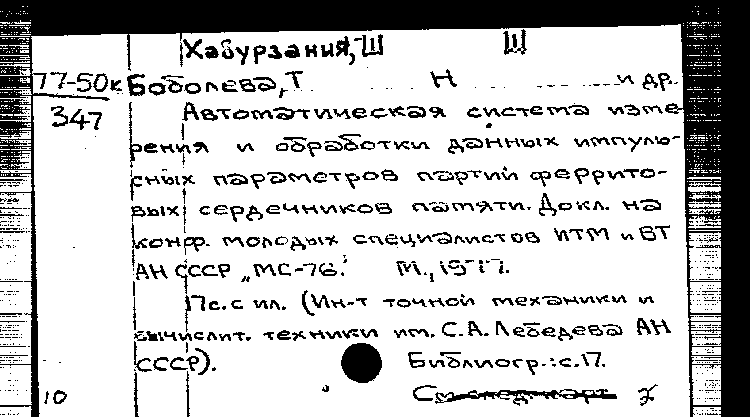 Хабурзания, Ш Ш
77-50к Боболева, Т Н и др.
347 Автоматическая система изме-
рения и обработки данных импуль-
сных параметров партий феррито-
вых сердечников памяти. Докл. на
конф. молодых специалистов ИТМ и ВТ
АН СССР „МС-76." М., 1977.
17с. с ил. (Ин-т точной механики и
вычислит. техники им. С.А. Лебедева АН
СССР). Библиогр.: с. 17.
10 См. след. карт.